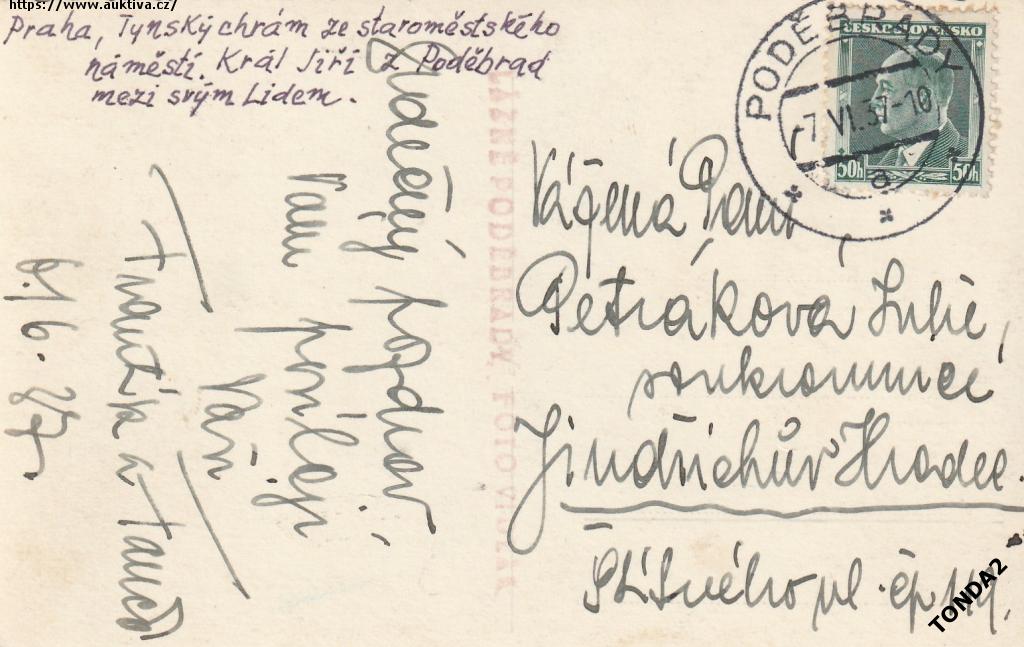 https://www.auktiva.cz/
Praha, Tynský chrám ze staroměstského
náměstí. Král Jiří z Poděbrad
mezi svým Lidem.
Srdečný pozdrav
Vam posílají
Vaši
Frantík a
6./6. 37.
LÁZNĚ PODĚBRADY, FOTO
PODĚBRADY
-7.VI.37-10
a
ČESKOSLOVENSKO
50h 50h
Vážená Paní
Petráková Julie,
soukromnice
Jindřichův Hradec.
Štítného ul. čp
TONDA2